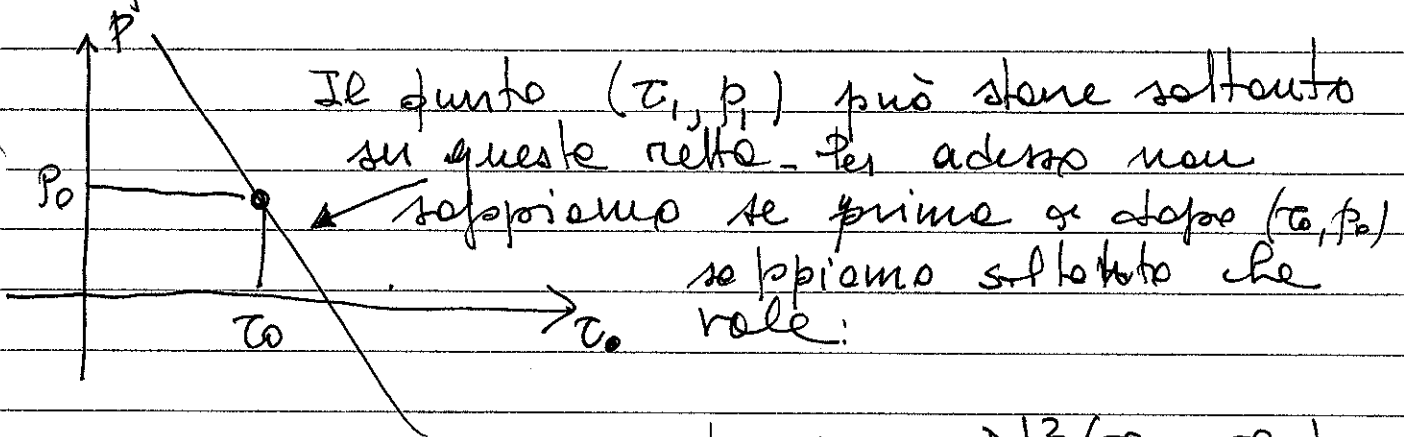 p
Il punto (τ₁, p₁) può stare soltanto
su questa retta. Per adesso non
p₀ sappiamo se prima o dopo (τ₀, p₀)
sappiamo soltanto che
τ₀ τ₀ vale: